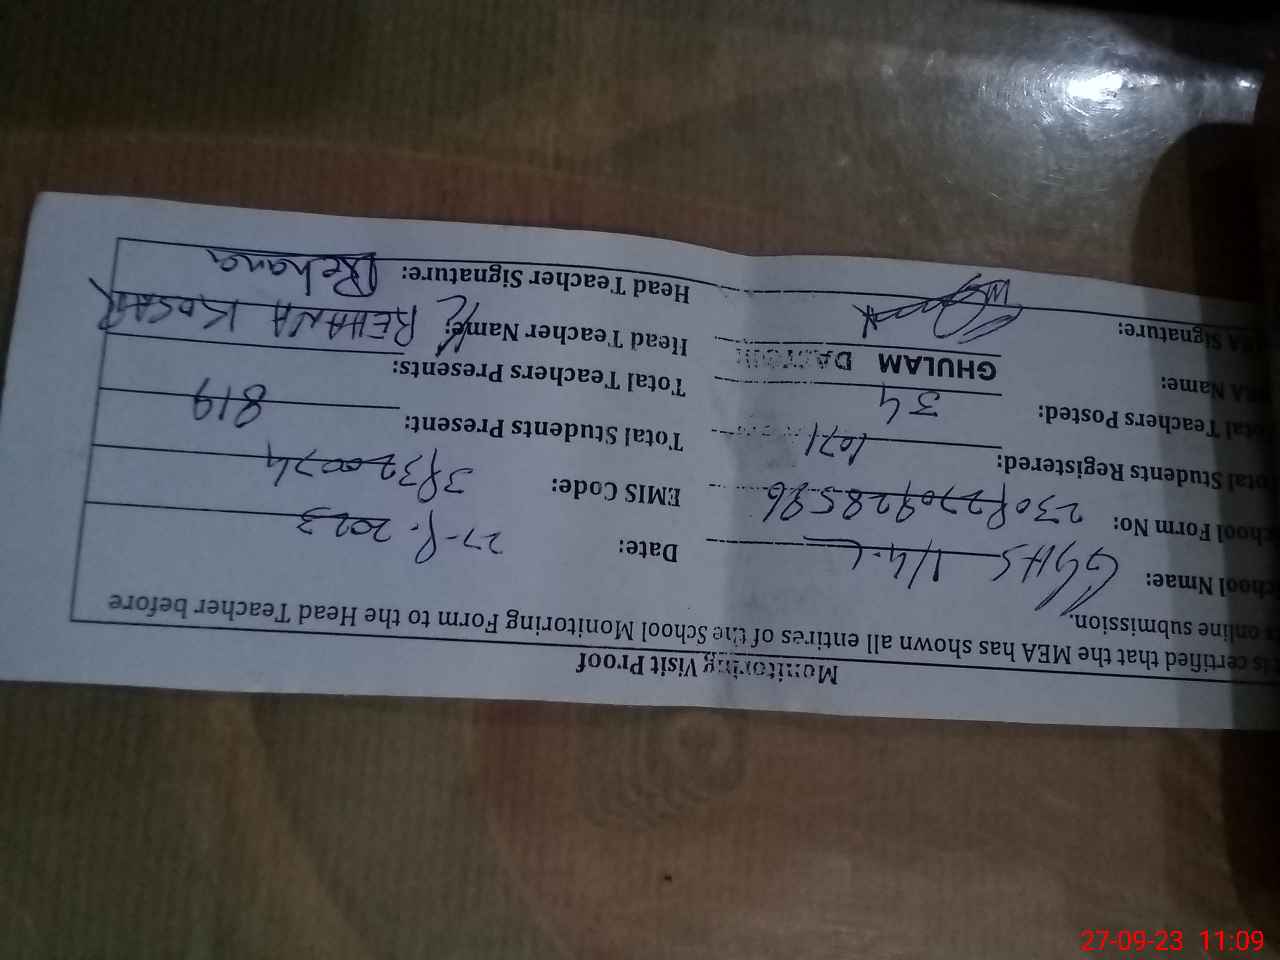 Monitoring Visit Proof
is certified that the MEA has shown all entires of the School Monitoring Form to the Head Teacher before
online submission.
chool Nmae: GGHS 1/4.L Date: 27-9-2023
chool Form No: EMIS Code:
Total Students Registered: 1071 Total Students Present: 819
Total Teachers Posted: 34 Total Teachers Presents:
Name: GHULAM Head Teacher Name: I/C REHANA KOSAR
Signature: Head Teacher Signature: Rehana
27-09-23 11:09